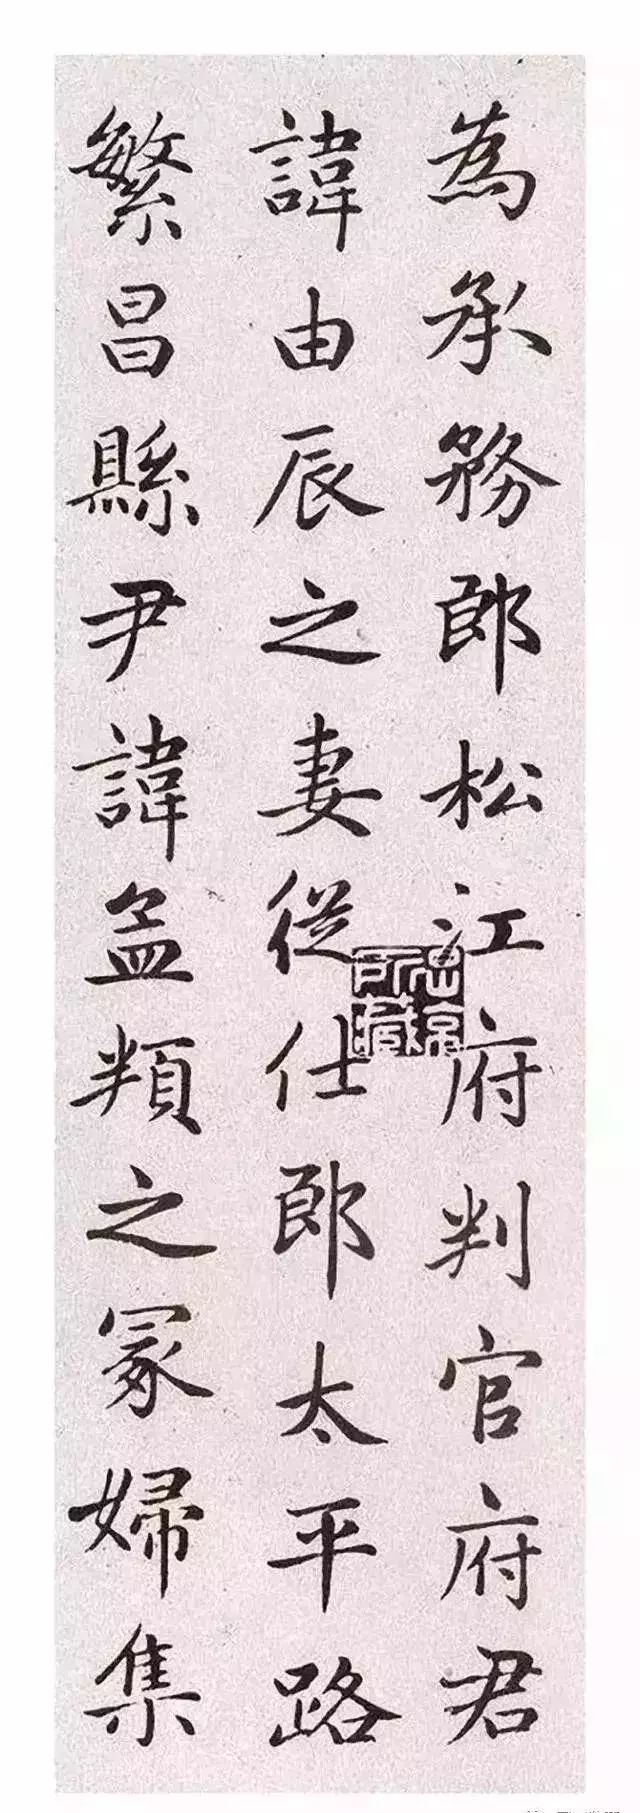 為承務郎松江府判官府君
諱由辰之妻從仕郎太平路
繁昌縣尹諱孟頖之冢婦集